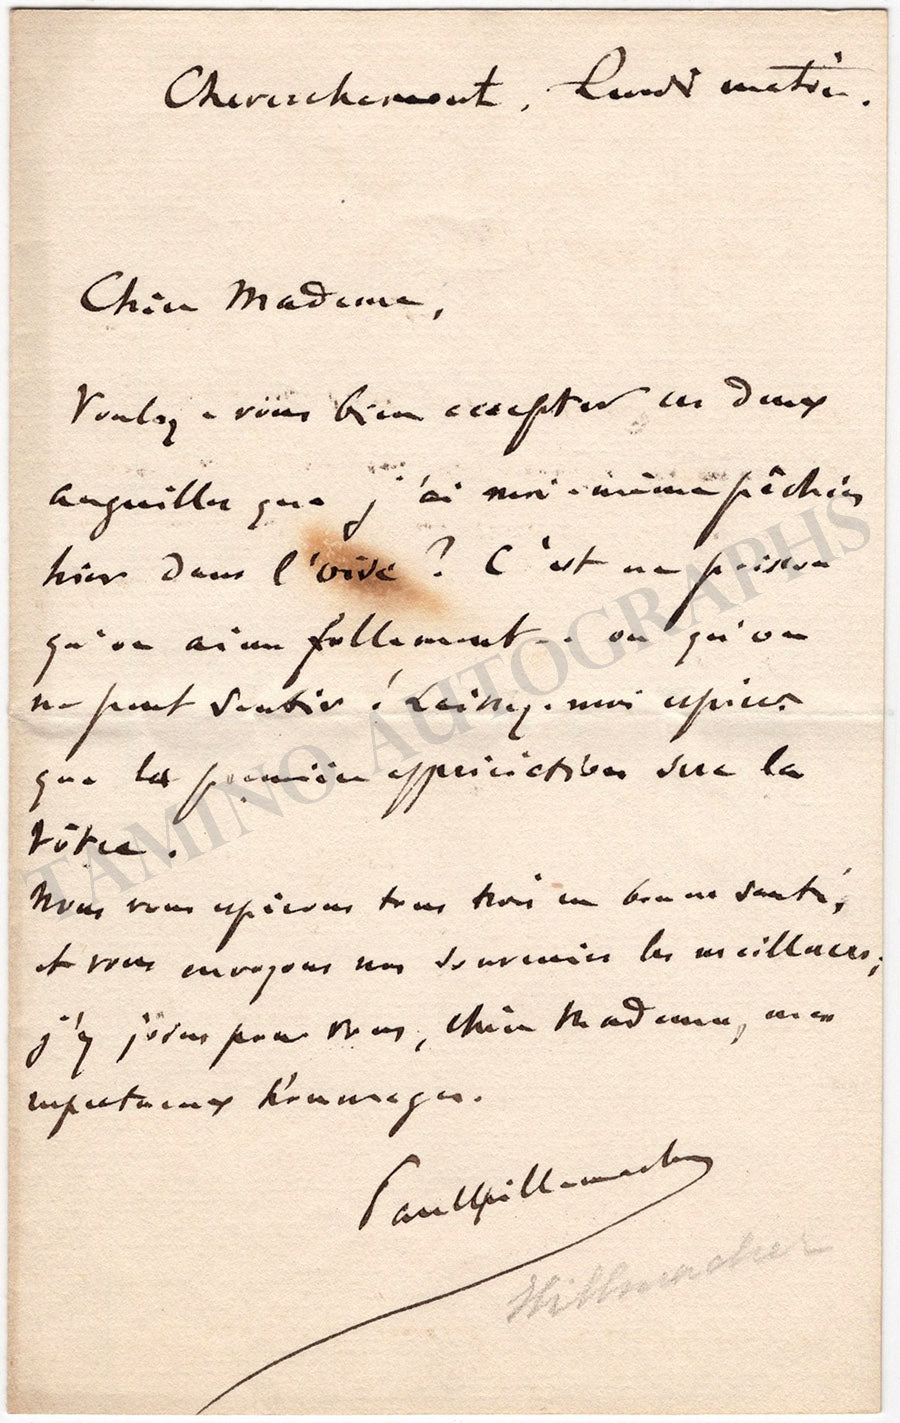 Lundi matin.
Chère Madame,
Voulez-vous bien accepter ces deux
anguilles que j'ai moi-même pêchées
hier dans l'Oise ? C'est un poisson
qu'on aime follement... ou qu'on
ne peut sentir ! Laissez-moi espérer
que la première appréciation sera la
vôtre.
Nous vous espérons tous trois en bonne santé,
et vous envoyons nos souvenirs les meilleurs ;
j'y joins pour vous, chère Madame, mes
respectueux hommages.
Paul Hillemacher
Hillemacher
TAMINO AUTOGRAPHS